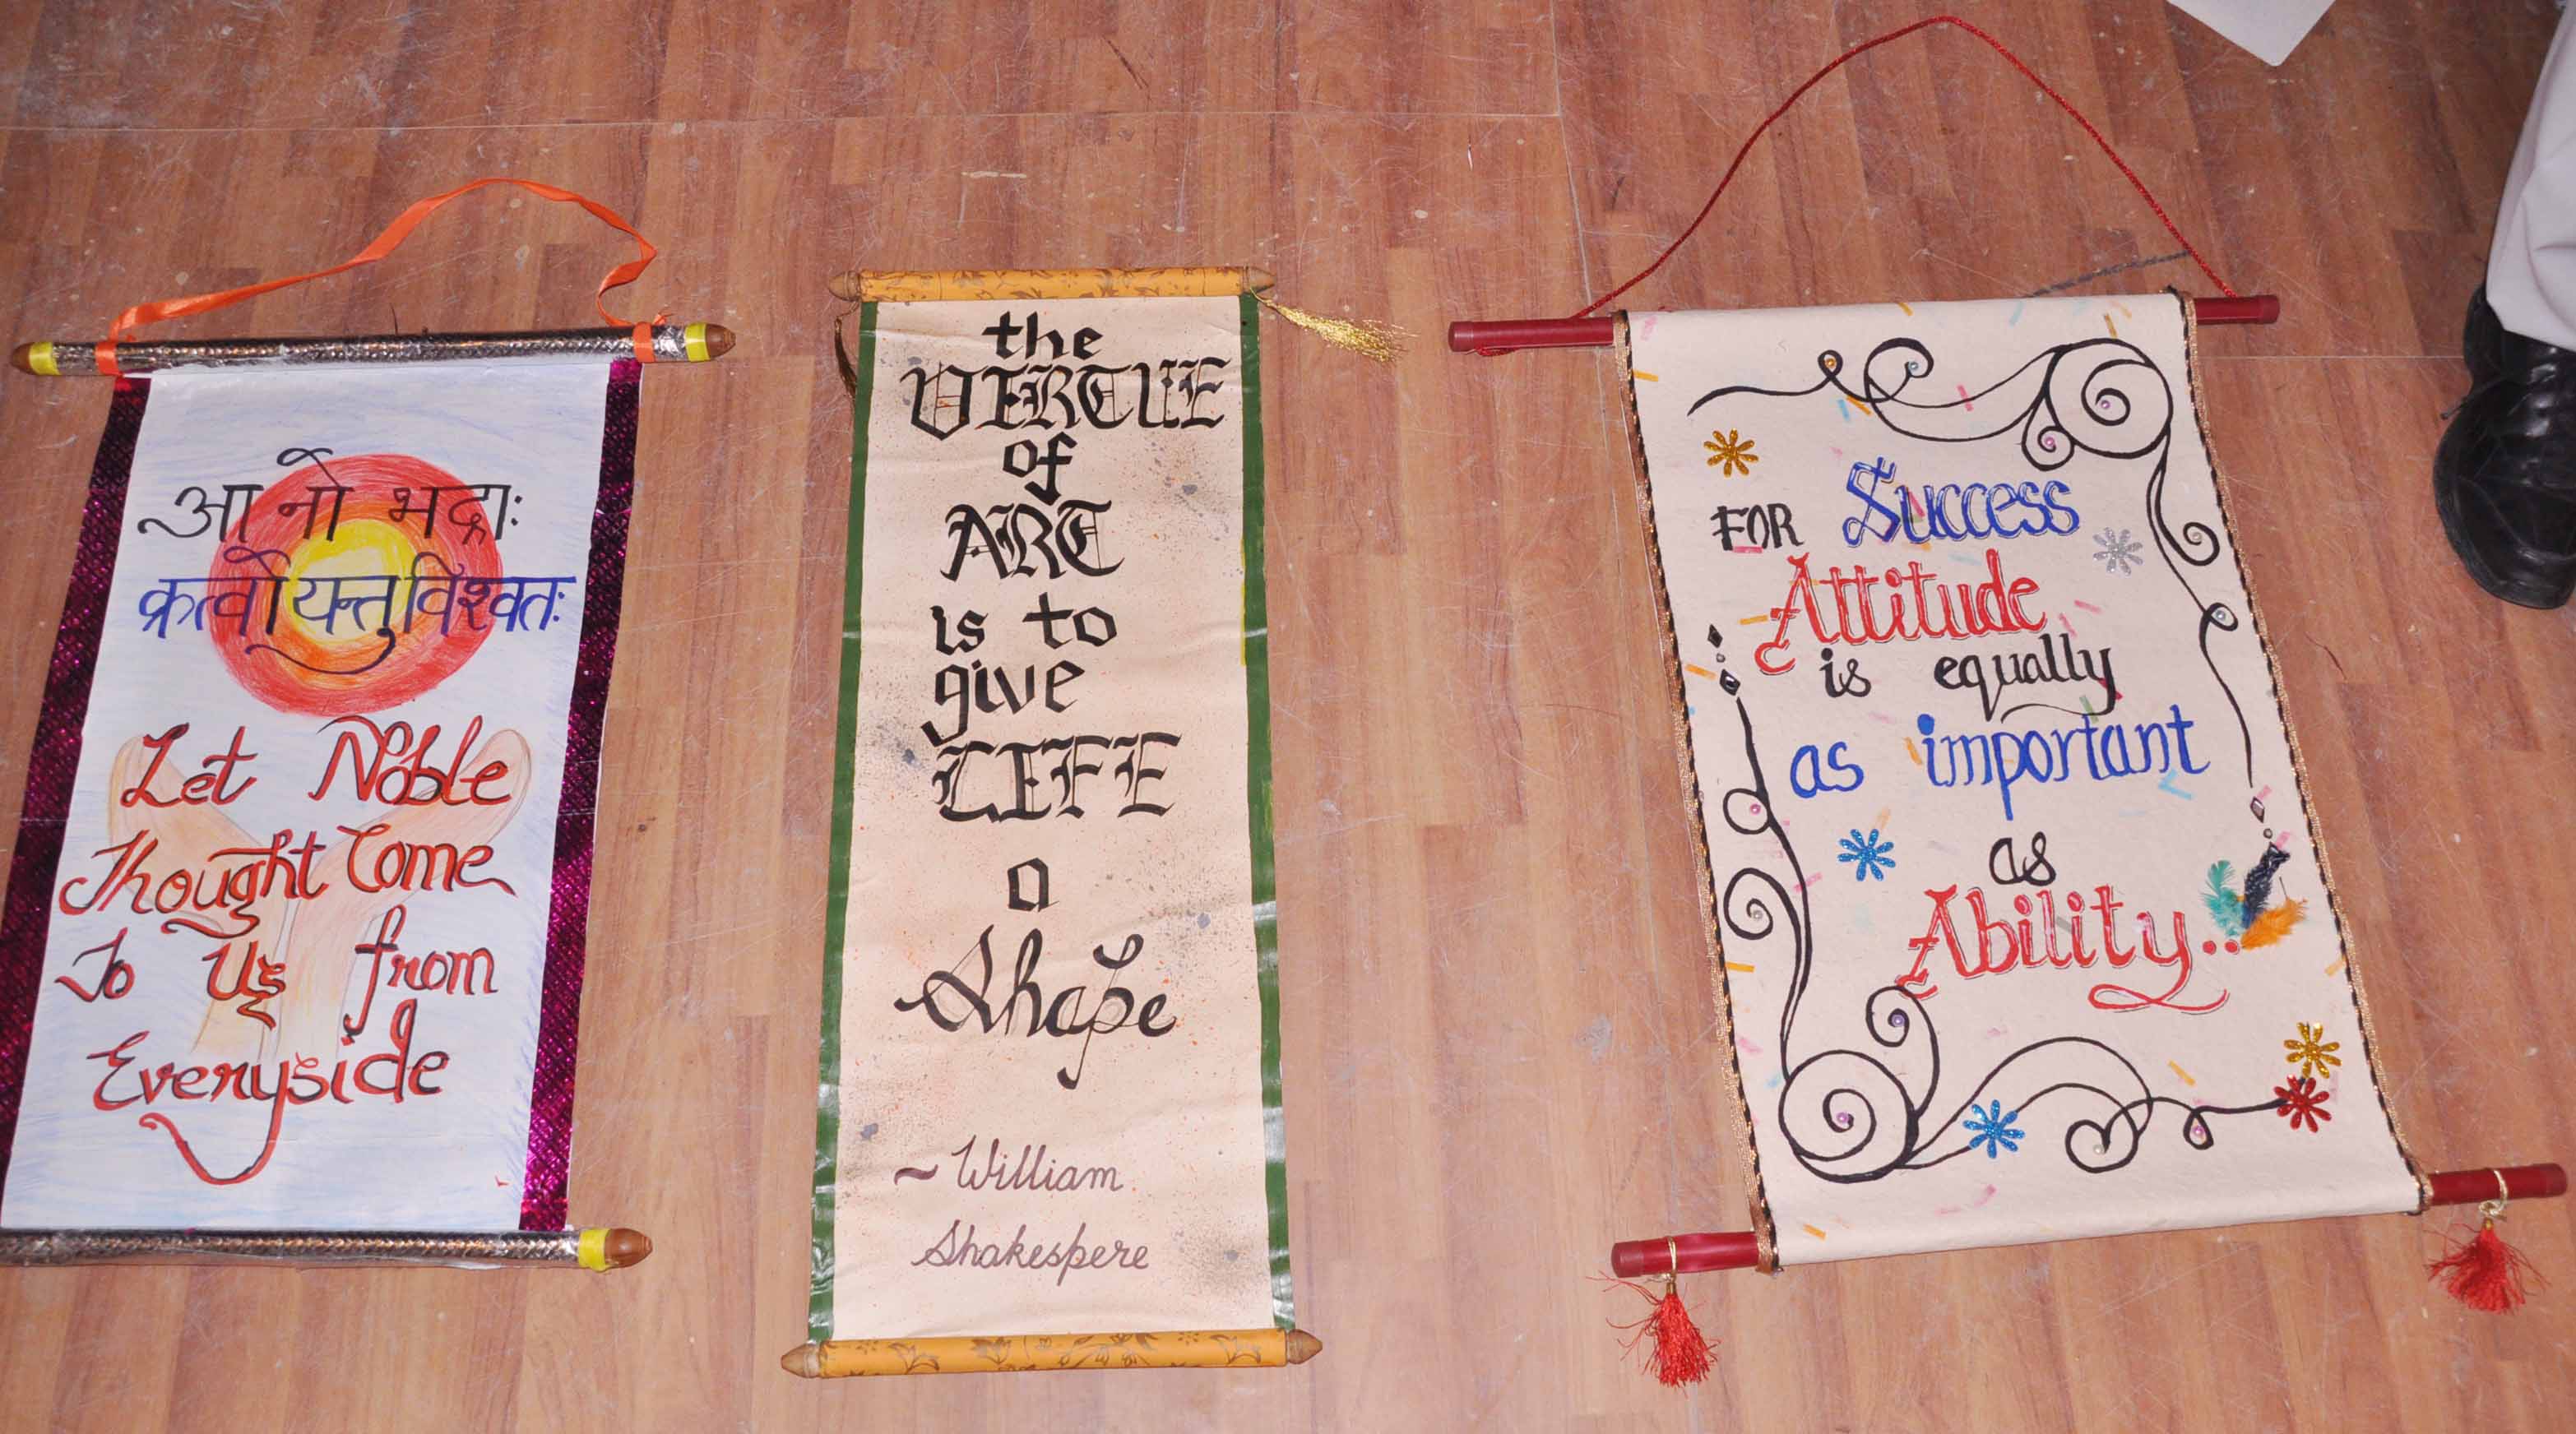 आ नो भद्राः
क्रत्वो यन्तु विश्वतः
Let Noble
Thought Come
To Us from
Everyside
the
VIRTUE
of
ART
is to
give
LIFE
a
Shape
~ William
Shakespere
FOR Success
Attitude
is equally
as important
as
Ability..